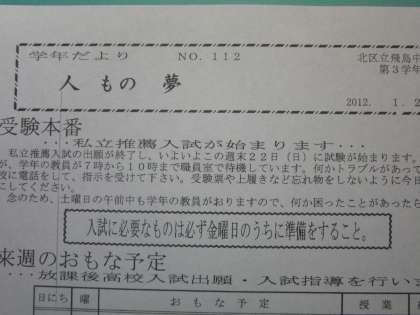 学年だより NO.112
北区立飛鳥中
第3学年
人 もの 夢
2012. 1.2
受験本番
・・・私立推薦入試が始まります・・・
私立推薦入試の出願が終了し、いよいよこの週末22日（日）に試験が始まります。
が、学年の教員が7時から10時まで職員室で待機しています。何かトラブルがあって
校に電話をして、指示を受けて下さい。受験票や上履きなど忘れ物をしないように今日
にしてください。
念のため、土曜日の午前中も学年の教員がおりますので、何か困ったことがあったら
入試に必要なものは必ず金曜日のうちに準備をすること。
来週のおもな予定
・・・放課後高校入試出願・入試指導を行いま
日にち 曜 おもな予定 授業